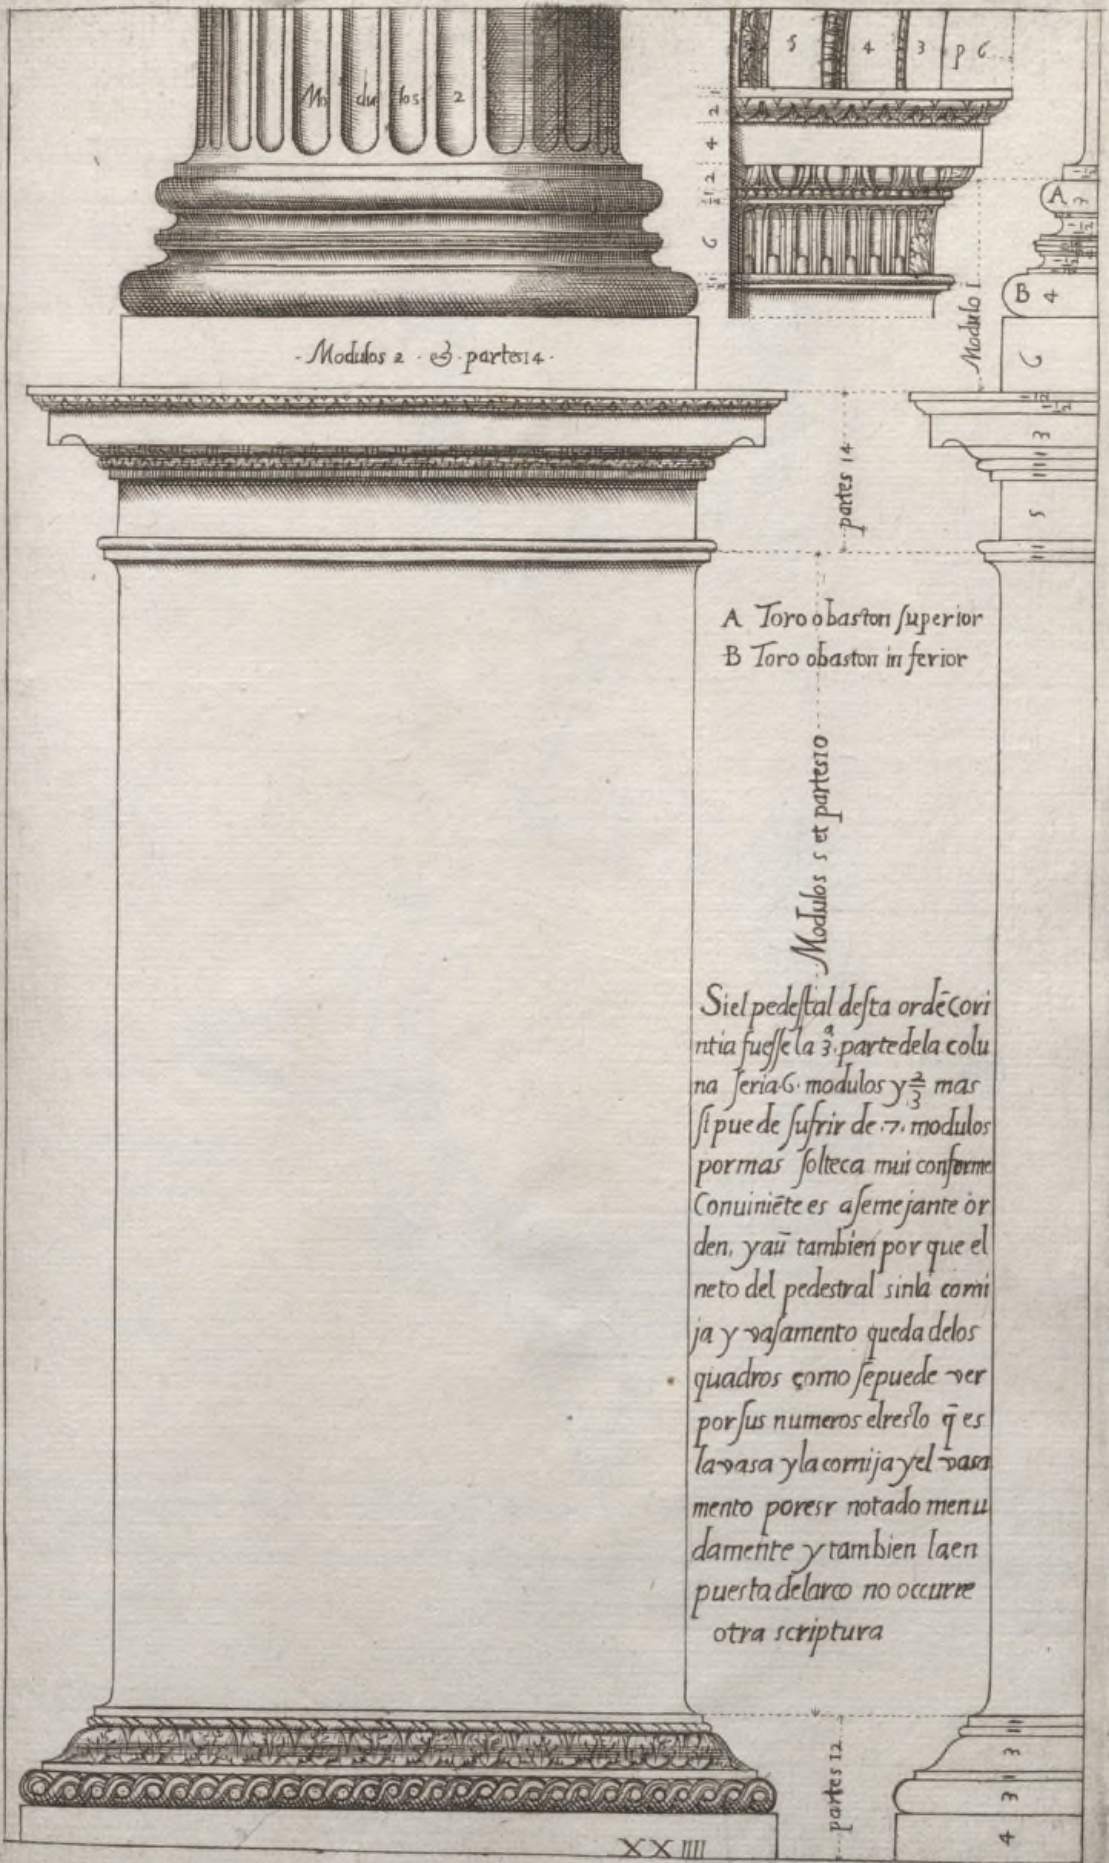 Mo du los 2
5 4 3 p 6
1
2
4
2
1/2
6
1/2
Modulo 1
A 3
B 4
6
- Modulos 2 · & · partes 14 -
partes 14
3
5
A Toro o baston ſuperior
B Toro obaston in ferior
Modulos 5 et partes 10
Siel pedeſtal deſta ordēcori
ntia fueſſe la 3.ª parte dela colu
na ſeria·6· modulos y 2/3 mas
ſi pue de ſufrir de ·7· modulos
por mas ſolteca mui conforme
Conuiniēte es aſemejante or
den, y aū tambien por que el
neto del pedestral sinla corni
ja y vaſamento queda delos
quadros çomo ſepuede ver
por ſus numeros elresto q̄ es
la vasa y la cornija y el vasa
mento poresr notado menu
damente y tambien laen
puesta delarco no occurre
otra scriptura
partes 12
3
3
4
XXIIII